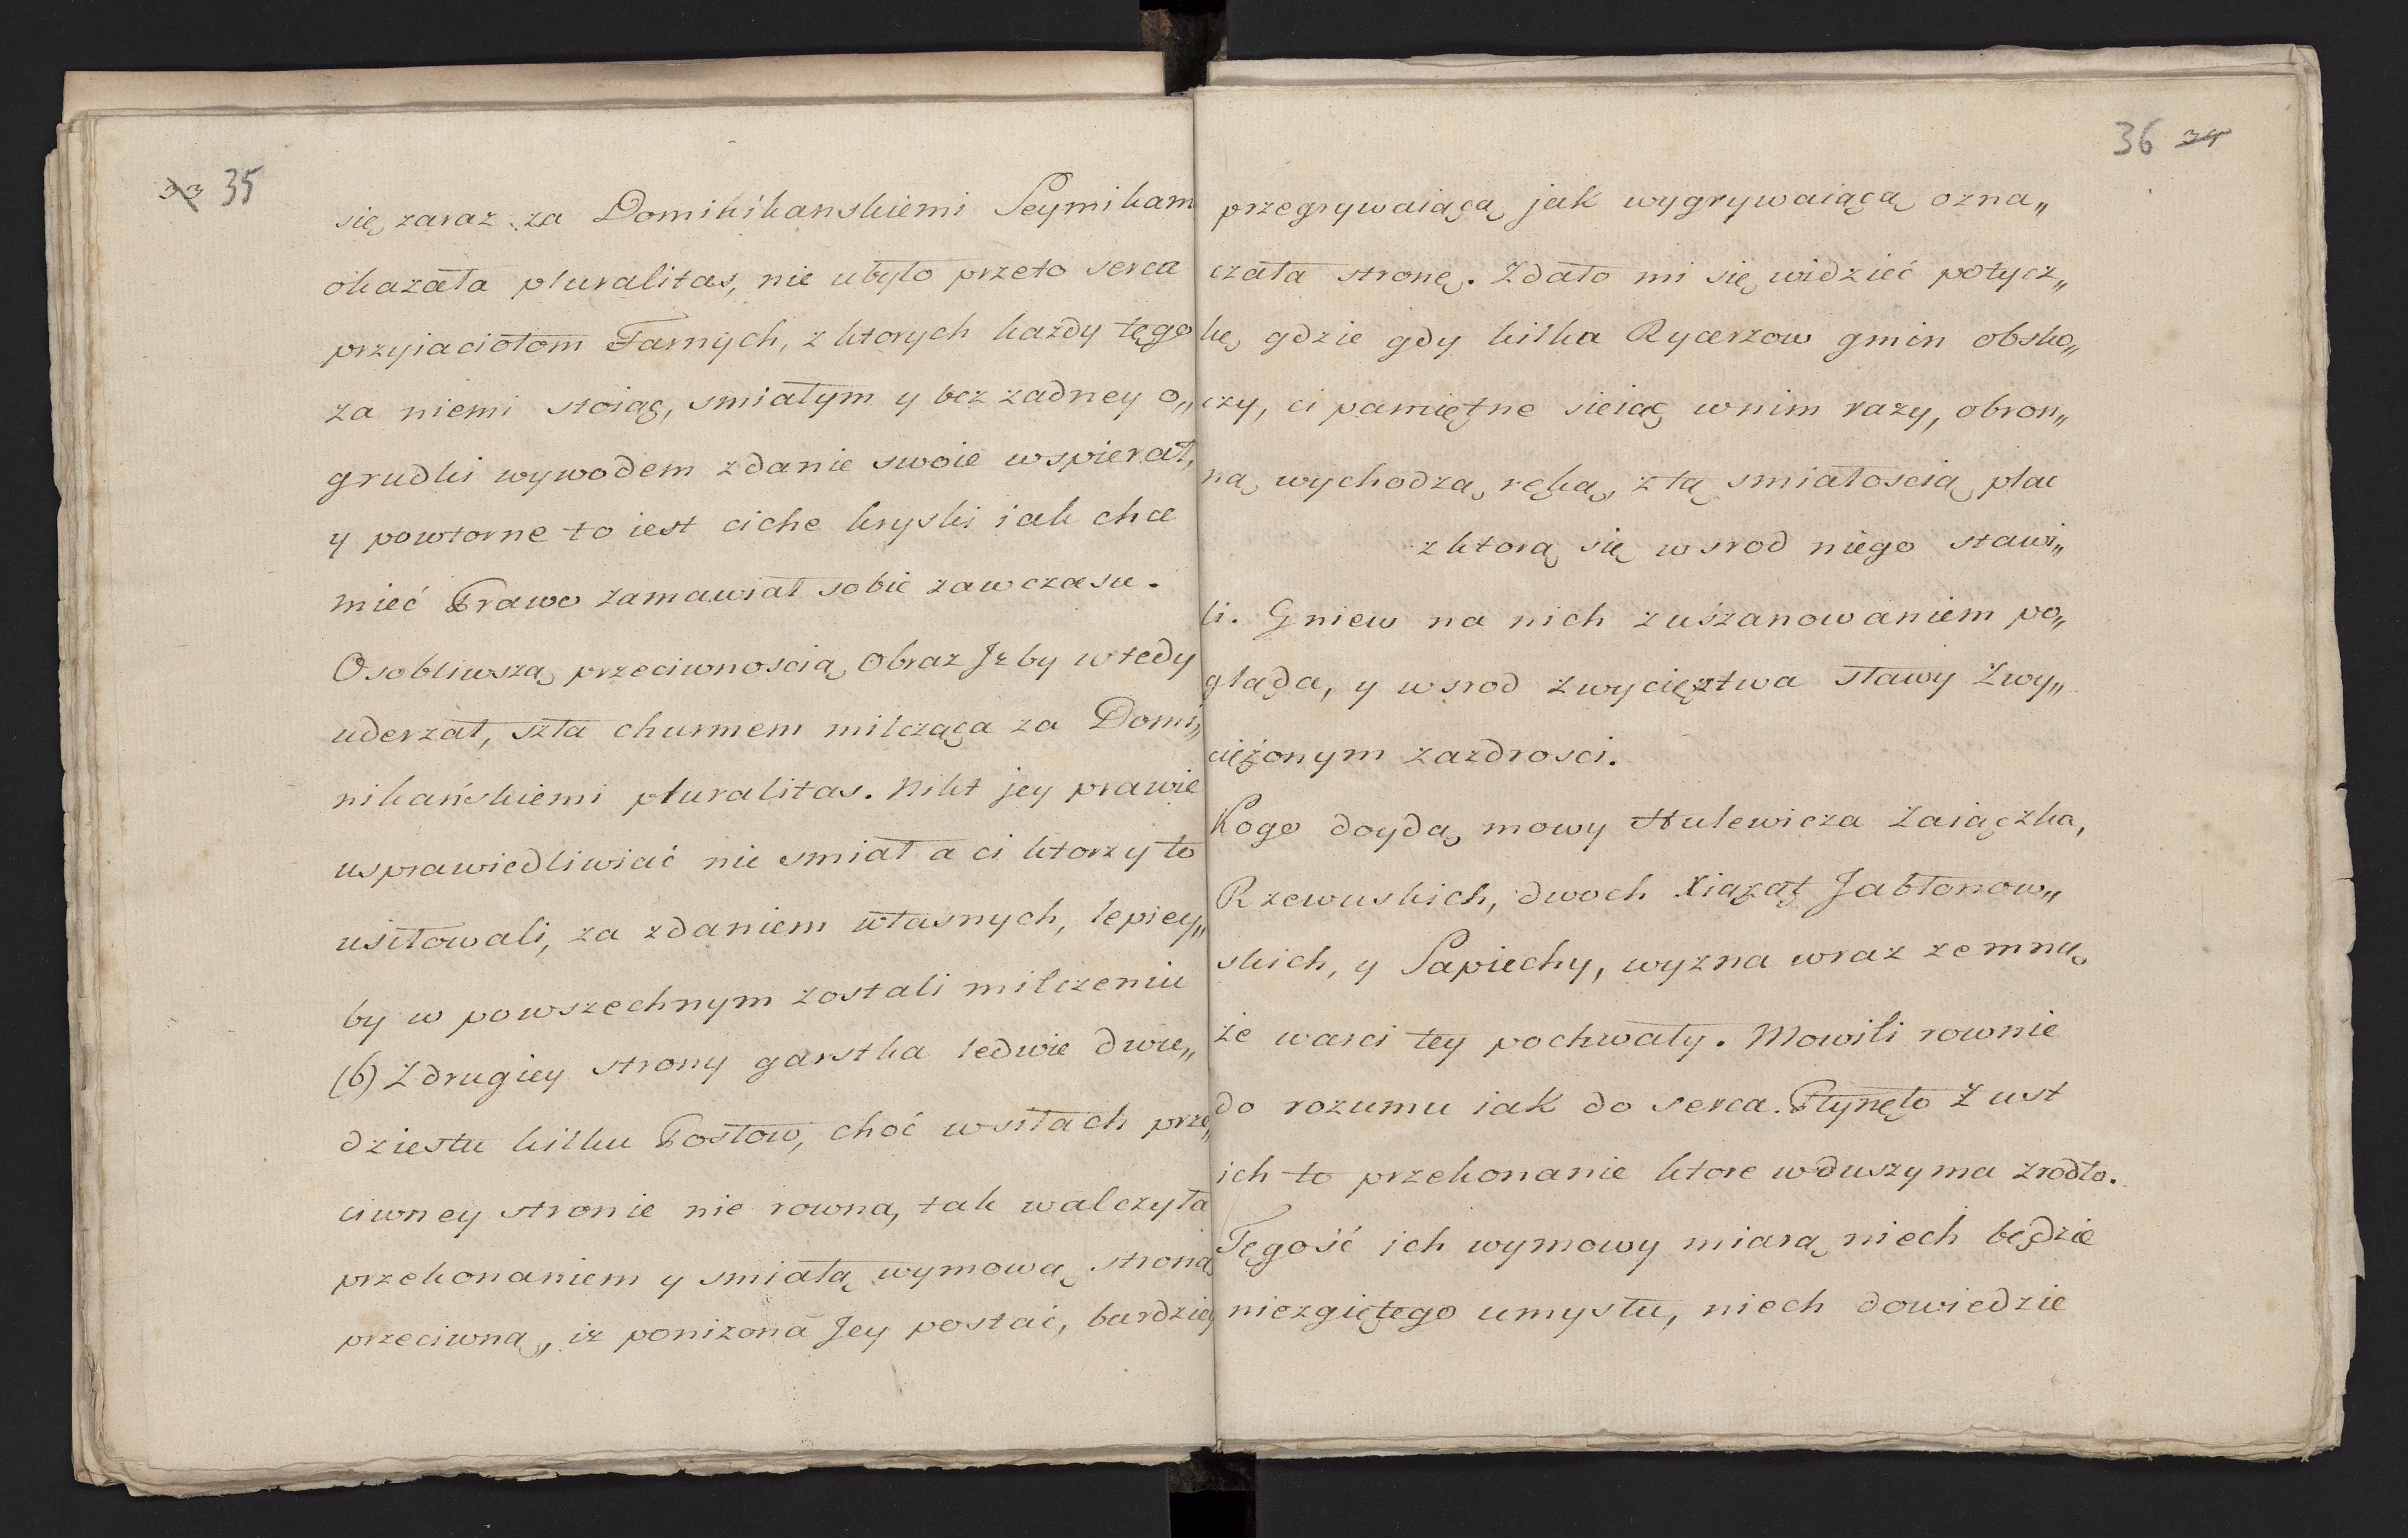 33 35
się zaraz za Domikikanskiemi Seymikam
okazała pluralitas, nie ubyło przeto serca
przyiaciołom Farnych, z ktorych każdy tęgo
za niemi stoiąc, smiałym y bez zadney o„
grudki wywodem zdanie swoie wspierał,
y powtorne to iest ciche kryski iak chce
mieć Prawo zamawiał sobie zawczasu.
Osobliwszą przeciwnoscią Obraz Jzby wtedy
uderzał, szła churmem milcząca za Domi„
nikańskiemi pluralitas. Nikt jey prawie
usprawiedliwiać nie smiał a ci ktorzy to
usiłowali, za zdaniem własnych, lepiey„
by w powszechnym zostali milczeniu
(b) Z drugiey strony garstka ledwie dwu„
dziestu kilku Posłow, choć w siłach prze„
ciwney stronie nie rowna, tak walczyła
przekonaniem y smiałą wymową stroną
przeciwną, iż poniżona Jey postać, bardziey
36 34
przegrywaiącą jak wygrywaiącą ozna„
czała stronę. Zdało mi się widzieć potycz„
kę gdzie gdy kilka Rycerzow gmin obsko„
czy, ci pamiętne sieiąc w nim razy, obron„
ną wychodzą ręką, z tą smiałoscią plac
z ktorą się wsrod niego stawi„
li. Gniew na nich z uszanowaniem po„
gląda, y wsrod zwycięztwa sławy Zwy„
ciężonym zazdrosci.
Kogo doydą mowy Hulewicza Zaiączka,
Rzewuskich, dwoch Xiążąt Jabłonow„
skich, y Sapiechy, wyzna wraz zemną
że warci tey pochwały. Mowili rownie
do rozumu iak do serca. Płynęło Z ust
ich to przekonanie ktore w duszy ma zrodło.
Tęgość ich wymowy miarą niech będzie
niezgiętego umysłu, niech dowiedzie